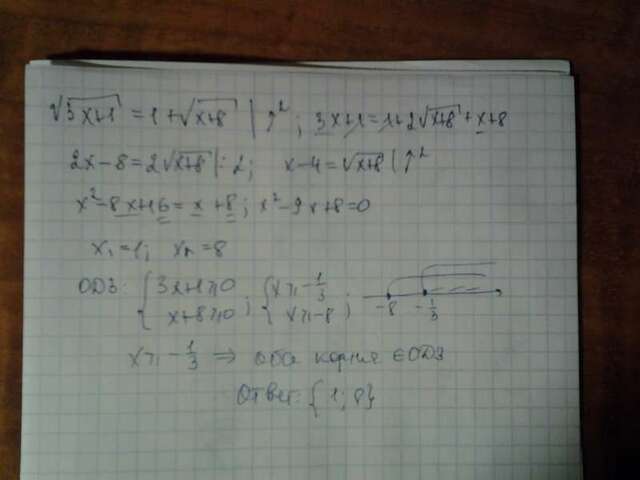 √3x+1 = 1+√x+8 | ↑²; 3x+1=1+2√x+8+x+8
2x-8=2√x+8 |:2; x-4=√x+8 | ↑²
x²-8x+16=x+8; x²-9x+8=0
x₁=1; x₂=8
ОДЗ: { 3x+1≥0 x+8≥0 ; { x≥-1/3 x≥-8 ; -8 -1/3
x≥-1/3 ⇒ оба корня ∈ ОДЗ
Ответ: {1; 8}